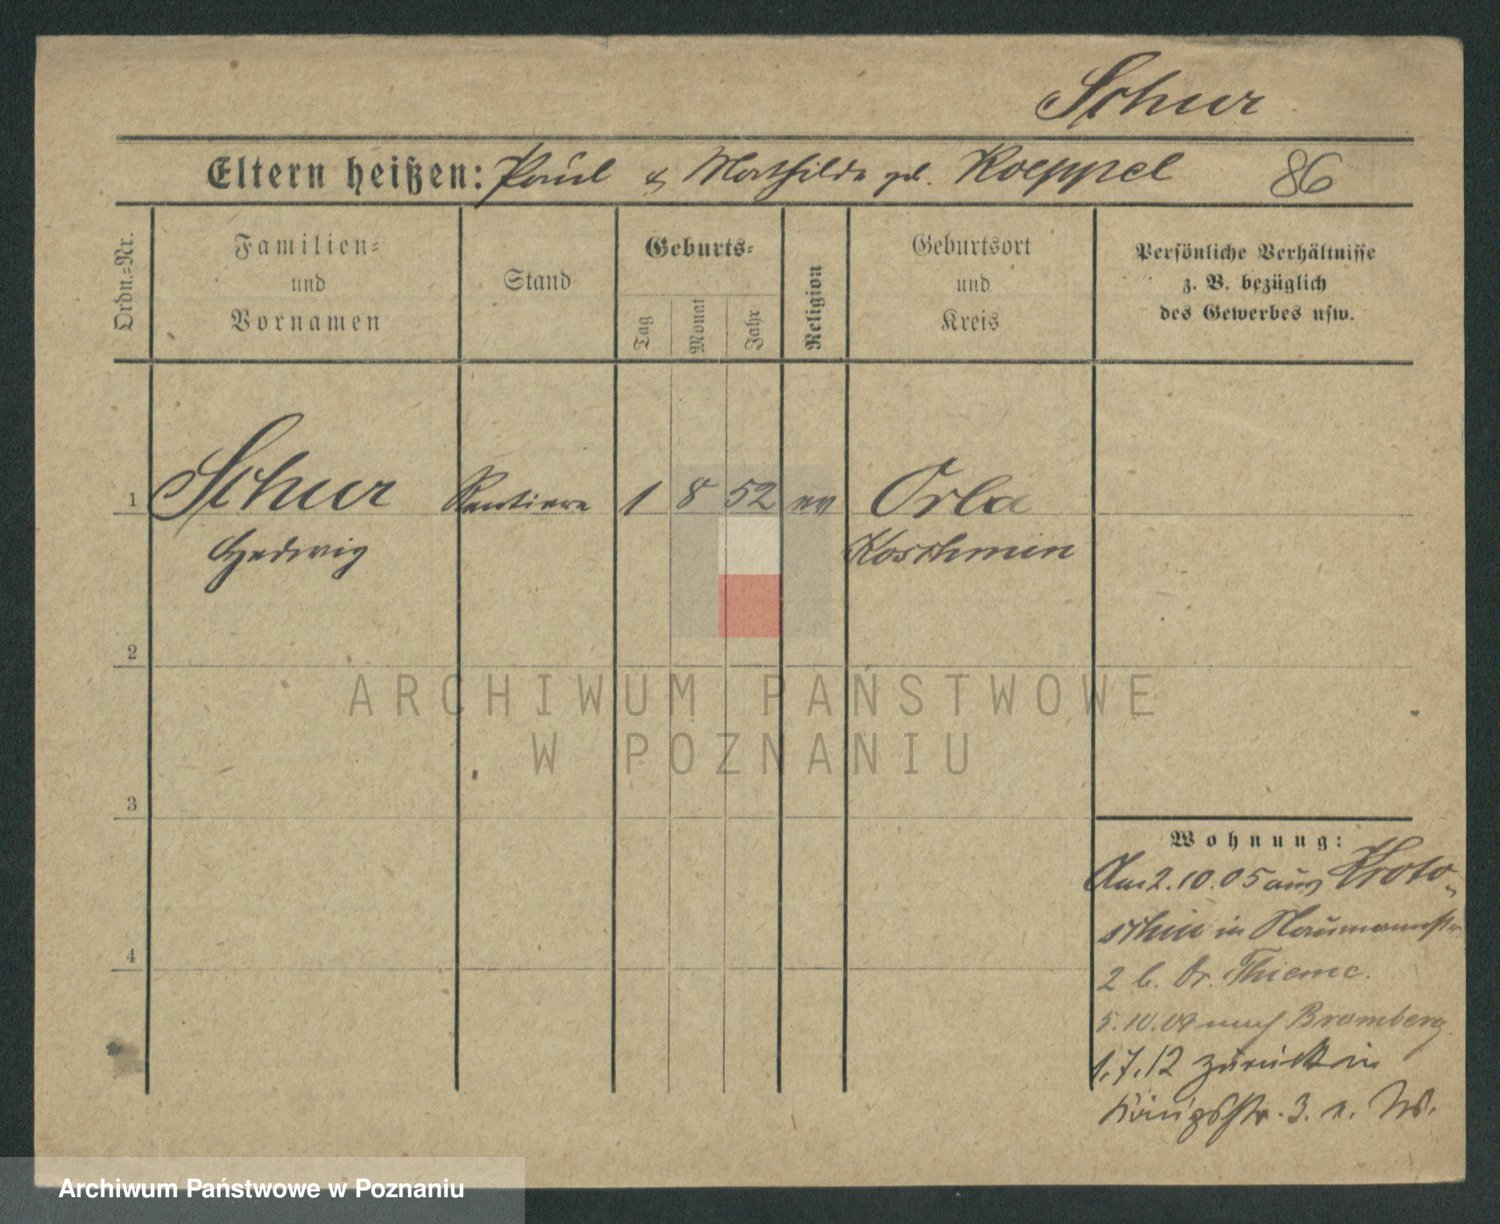 Schur
Eltern heißen: Paul & Mathilde geb. Koeppel 86
Ordn.=Nr.
Familien=
und
Vornamen
Stand
Geburts=
Tag
Monat
Jahr
Religion
Geburtsort
und
Kreis
Persönliche Verhältnisse
z. B. bezüglich
des Gewerbes usw.
1 Schur Rentiere 1 8 52 ev Orla
Hedwig Koschmin
2
ARCHIWUM PAŃSTWOWE
W POZNANIU
3
4
Wohnung:
Am 2.10.05 aus Kroto-
schin in Naumannstr
2 b. Dr. Thieme.
5.10.09 nach Bromberg
1.7.12 zurück in
Königsstr. 3. e. W.
Archiwum Państwowe w Poznaniu